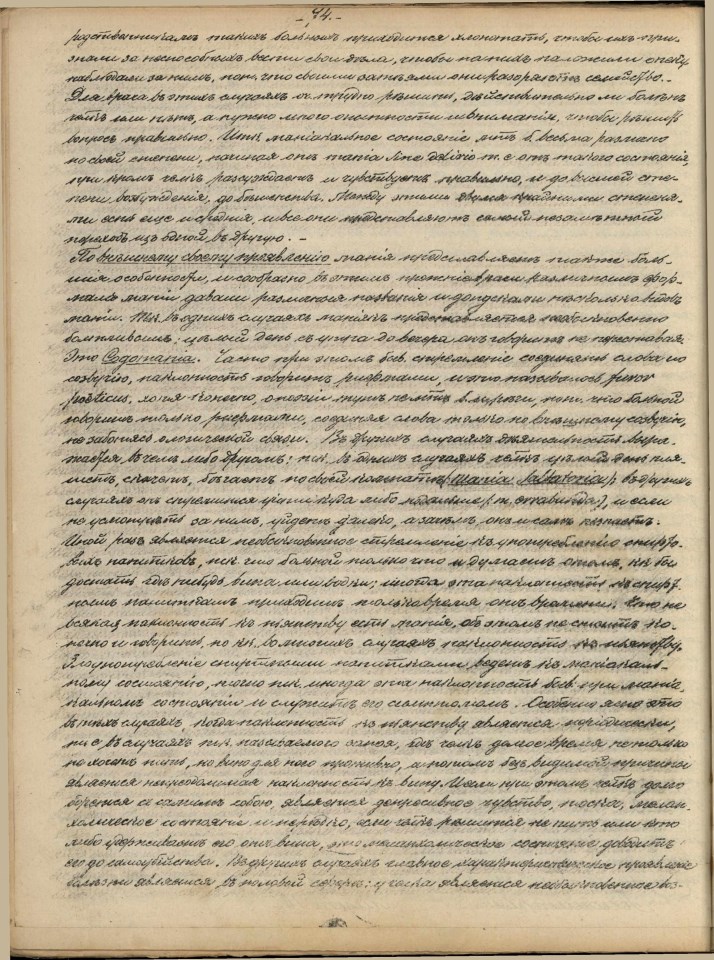 - 44. -
родственникамъ такихъ больныхъ приходится хлопотать, чтобы ихъ при-
знали за неспособныхъ вести свои дѣла, чтобы на нихъ наложили опеку
наблюдали за нихъ, пот. что своими затѣями они разоряютъ семейство.
Для врача въ этихъ случаяхъ оч. трудно рѣшить, дѣйствительно ли боленъ
челкъ или нѣтъ, а нужно много опытности и вниманія, чтобы рѣшить
вопросъ правильно. Итакъ маніакальное состояніе мтъ б. весьма различно
по своей степени, начиная отъ mania sine delirio т. е. отъ такого состоянія,
при кромъ челкъ разсуждаетъ и чувствуетъ правильно, и до высшей сте-
пени возбужденія, до бѣшенства. Между этими двумя крайними степеня-
ми есть еще и средняя, и всѣ они представляютъ самый незамѣтный
переходъ изъ одной въ другую. -
По внѣшнему своему проявленію манія представляетъ также боль-
шія особенности, и сообразно съ этимъ прежніе врачи различнымъ фор-
мамъ маніи давали различныя названія и допускали нѣсколько видовъ
маніи. Такъ въ однихъ случаяхъ маніакъ представляется необыкновенно
болтливымъ: цѣлый день съ утра до вечера онъ говоритъ не переставая.
Это Содоманія. Часто при этомъ быв. стремленіе соединять слова по
созвучію, наклонность говорить рифмами, и это называлось furor
poëticus, хотя конечно, о поэзіи тутъ нѣтъ и рѣчи, пот. что больной
говоритъ только рифмами, соединяя слова только по внѣшнему созвучію,
не заботясь о логической связи. Въ другихъ случаяхъ дѣятельность выра-
жается въ чемъ либо другомъ: такъ, въ однихъ случаяхъ челкъ цѣлый день пля-
шетъ, скачетъ, бѣгаетъ по своей комнатѣ (Mania saltatoria); въ другихъ
случаяхъ онъ стремится уйти куда либо подальше (т. н. vagabunda), и если
не усмотрѣть за нимъ, уйдетъ далеко, а затѣмъ онъ и самъ
Иной разъ является необыкновенное стремленіе къ употребленію спирто-
выхъ напитковъ, такъ что больной только что и думаетъ о томъ, какъ бы
достать гдѣ нибудь вина или водки; иногда эта наклонность къ спирт-
нымъ напиткамъ приходитъ только время отъ времени. Что не
всякая наклонность къ пьянству есть манія, объ этомъ не стоитъ ко-
нечно и говорить, но какъ во многихъ случаяхъ наклонность къ пьянству,
злоупотребленіе спиртными напитками, ведетъ къ маніакаль-
ному состоянію, точно такъ иногда эта наклонность быв. при маніа-
кальномъ состояніи и служитъ его симптомомъ. Особенно ясно это
въ тѣхъ случаяхъ, когда наклонность къ пьянству является періодически,
т. е. въ случаяхъ такъ называемаго запоя, гдѣ челкъ долгое время не только
не хочетъ пить, но вино для него противно, а потомъ безъ видимой причины
является непреодолимая наклонность къ вину. И если при этомъ челкъ долго
борется съ самимъ собою, является депрессивное чувство, тоска, мелан-
холическое состояніе и нерѣдко, если челкъ рѣшится не пить или кто
либо удерживаетъ его отъ вина, это меланхолическое состояніе доводитъ
его до самоубійства. Въ другихъ случаяхъ главное характеристическое проявленіе
болѣзни является въ половой сферѣ: у челка является необыкновенное воз-